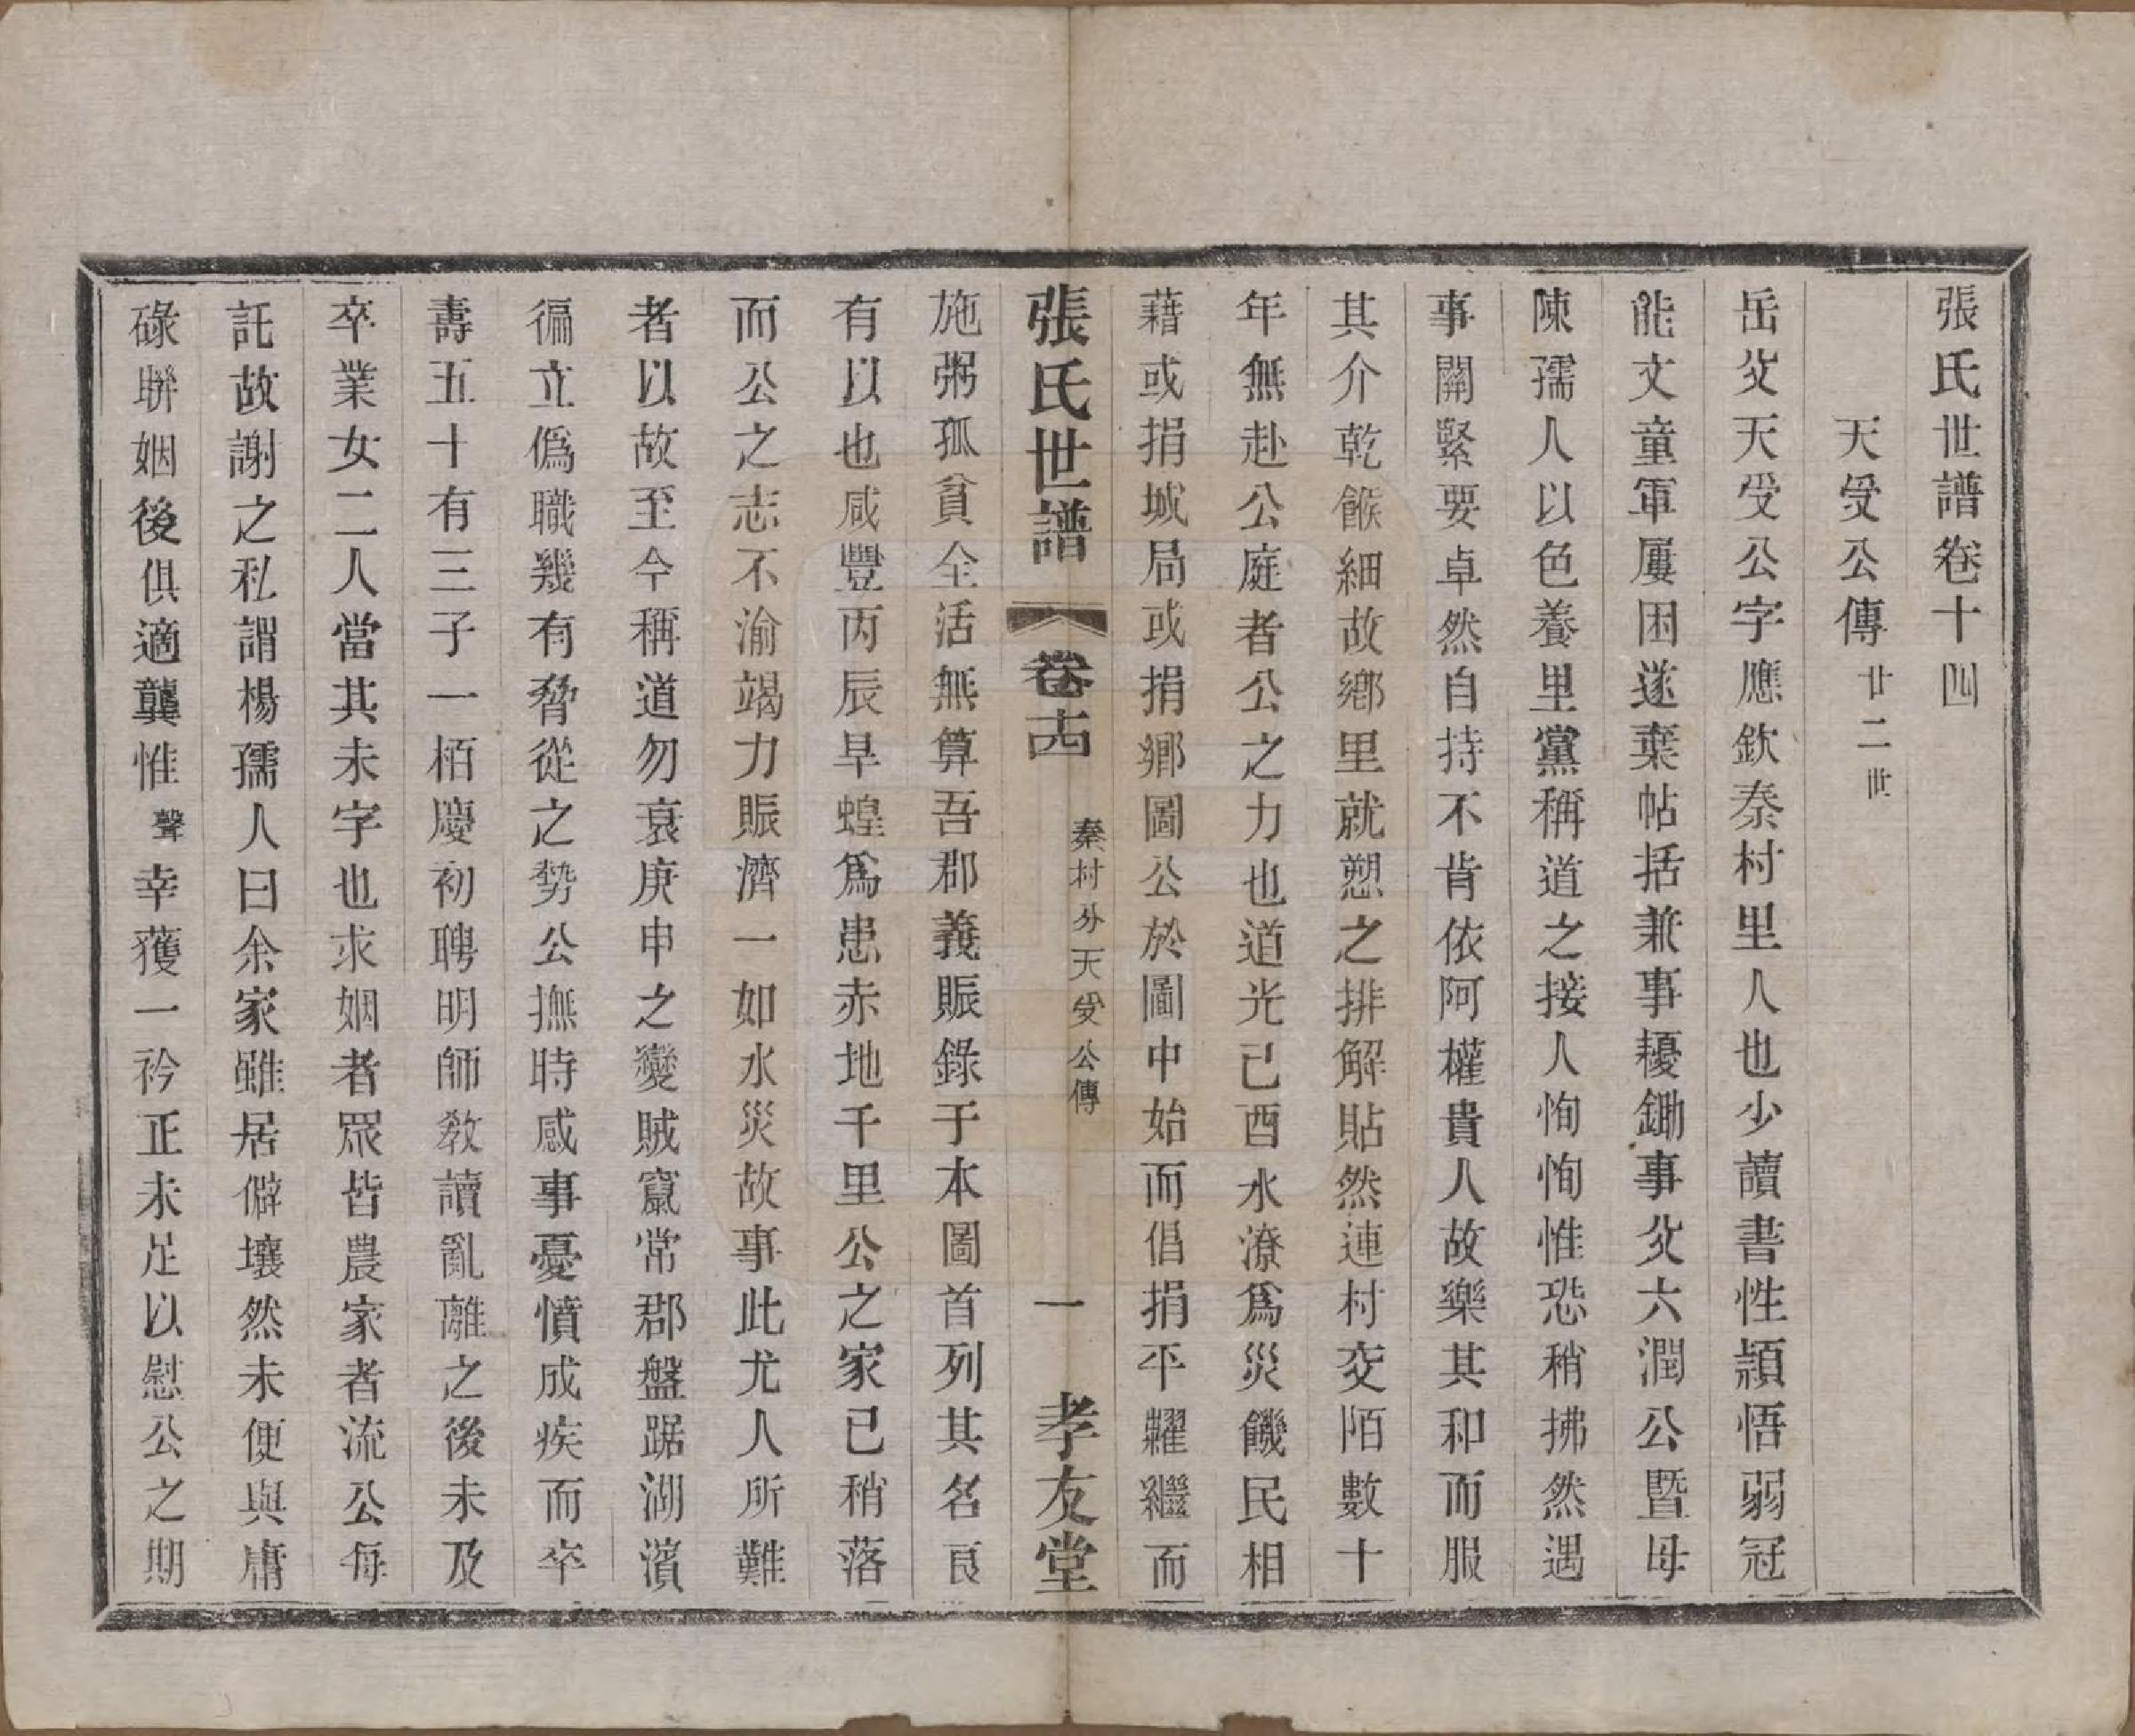 張氏世譜卷十四
天受公傳 廿二世
岳父天受公字應欽秦村里人也少讀書性頴悟弱冠
能文童軍屢困遂棄帖括兼事耰鋤事父六潤公暨母
陳孺人以色養里黨稱道之接人恂恂惟恐稍拂然遇
事關緊要卓然自持不肯依阿權貴人故樂其和而服
其介乾餱細故鄉里就愬之排解貼然連村交陌數十
年無赴公庭者公之力也道光己酉水潦爲災饑民相
藉或捐城局或捐鄉圖公於圖中始而倡捐平糶繼而
張氏世譜 卷十四 秦村分天受公傳 一 孝友堂
施粥孤貧全活無算吾郡義賑錄于本圖首列其名良
有以也咸豐丙辰旱蝗爲患赤地千里公之家已稍落
而公之志不渝竭力賑濟一如水災故事此尤人所難
者以故至今稱道勿衰庚申之變賊竄常郡盤踞湖濱
徧立僞職幾有脅從之勢公撫時感事憂憤成疾而卒
壽五十有三子一栢慶初聘明師教讀亂離之後未及
卒業女二人當其未字也求姻者眾皆農家者流公每
託故謝之私謂楊孺人曰余家雖居僻壤然未便與庸
碌聯姻後俱適龔惟聲幸獲一衿正未足以慰公之期